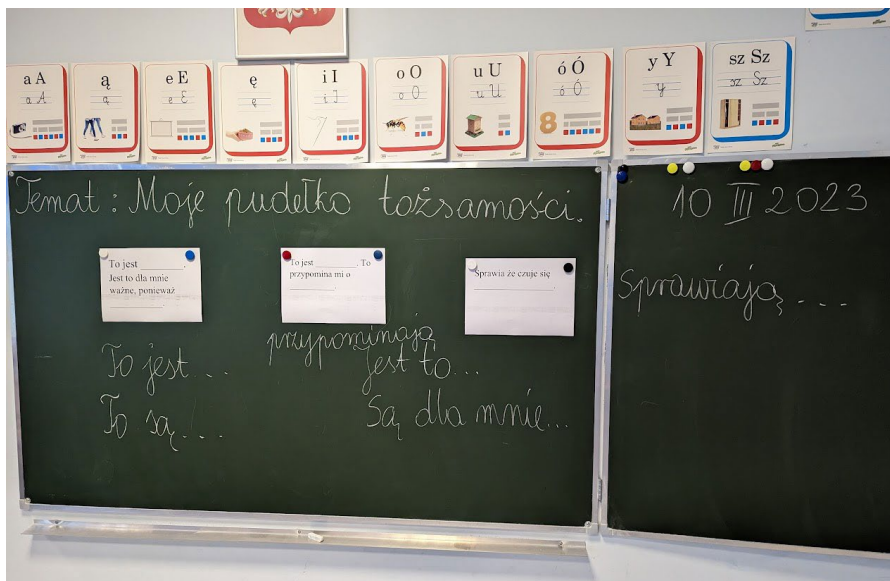 a A
a A
ą
ą
e E
e E
ę
ę
i I
i I
o O
o O
u U
u U
ó Ó
ó Ó
8
y Y
y
sz Sz
sz Sz
Temat: Moje pudełko tożsamości.
10 III 2023
To jest __________.
Jest to dla mnie
ważne, ponieważ
__________.
To jest __________. To
przypomina mi o
__________.
Sprawia że czuje się
__________.
przypominają
To jest...
Jest to...
To są....
Są dla mnie...
Sprawiają...